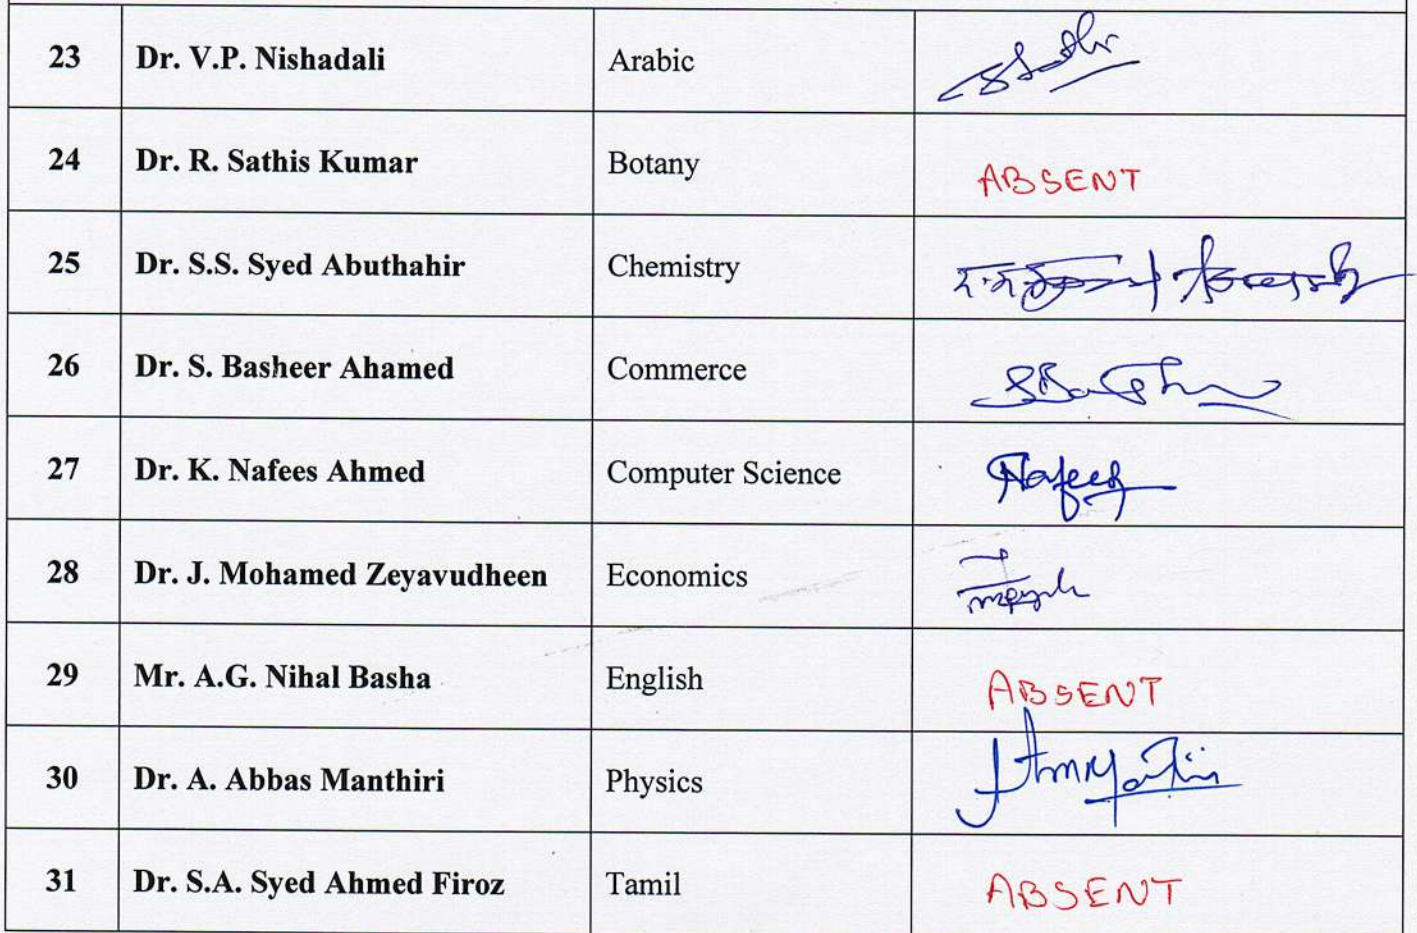 23 Dr. V.P. Nishadali Arabic
24 Dr. R. Sathis Kumar Botany ABSENT
25 Dr. S.S. Syed Abuthahir Chemistry
26 Dr. S. Basheer Ahamed Commerce
27 Dr. K. Nafees Ahmed Computer Science Nafees
28 Dr. J. Mohamed Zeyavudheen Economics
29 Mr. A.G. Nihal Basha English ABSENT
30 Dr. A. Abbas Manthiri Physics
31 Dr. S.A. Syed Ahmed Firoz Tamil ABSENT